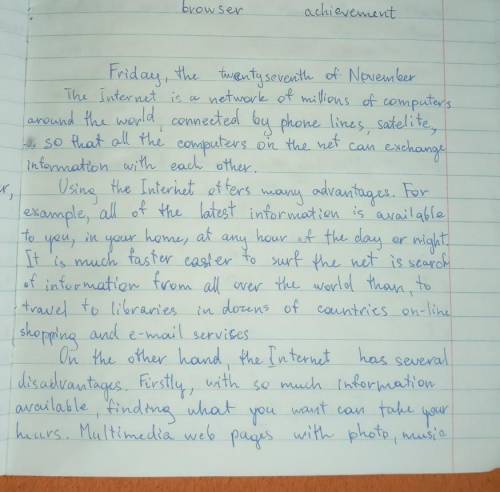 browser achievement
Friday, the twentyseventh of November
The Internet is a network of millions of computers
around the world, connected by phone lines, satelite,
so that all the computers on the net can exchange
information with each other.
Using the Internet offers many advantages. For
example, all of the latest information is available
to you, in your home, at any hour of the day or night.
It is much faster easier to surf the net is search
of information from all over the world than, to
travel to libraries in dozens of countries on-line
shopping and e-mail servises
On the other hand, the Internet has several
disadvantages. Firstly, with so much information
available, finding what you want can take your
hours. Multimedia web pages with photo, music